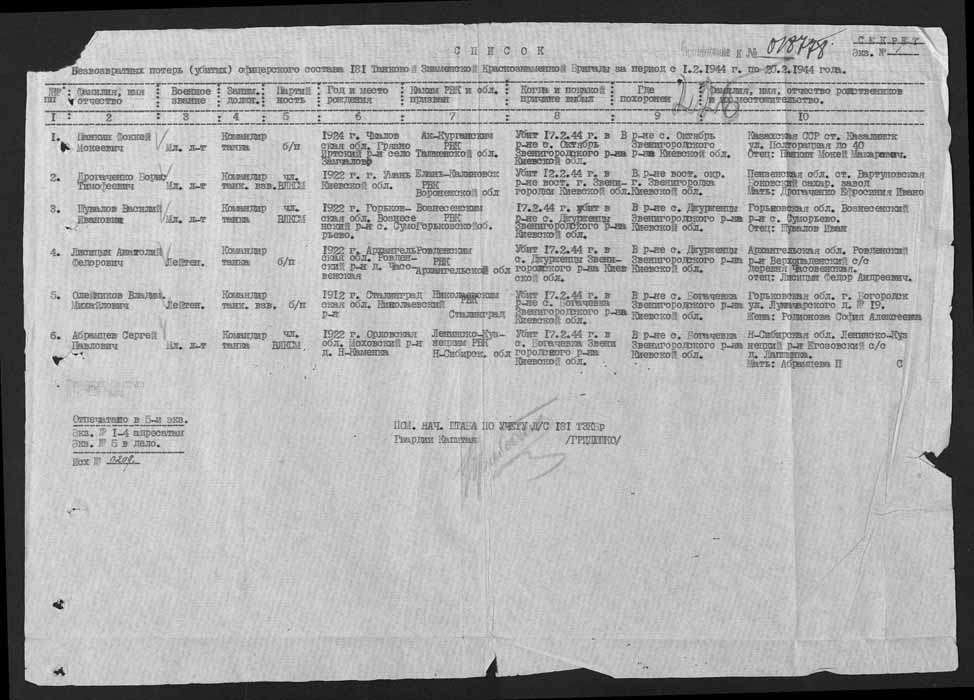 СЕКРЕТ
к № 018778
Экз. №
СПИСОК
Безвозвратных потерь (убитых) офицерского состава 181 Танковой Знаменской Краснознаменной Бригады за период с 1.2.1944 г. по 20.2.1944 года.
№№ пп : Фамилия, имя отчество : Военное звание : Заним. должн. : Партийность : Год и место рождения : Каким РВК и обл. призван : Когда и по какой причине выбыл : Где похоронен : Фамилия, имя, отчество родственников и местожительство.
1 : 2 : 3 : 4 : 5 : 6 : 7 : 8 : 9 : 10
1. Фоккей Мокеевич Мл. л-т Командир танка б/п 1924 г. Чкаловская обл. р-н село Ак-Курганским РВК Ташкенской обл. Убит 17.2.44 г. в р-не с. Октябрь Звенигородского р-на Киевской обл. В р-не с. Октябрь Звенигородского р-на Киевской обл. Казахская ССР ст. Казалинск ул. Полторацкая до 40 Отец: Мокей Макарович.
2. Дрогаченко Борис Тимофеевич Мл. л-т Командир танк. взв. чл. ВЛКСМ 1922 г. г. Умань Киевской обл. Елань-Калиновск РВК Воронежской обл Убит 12.2.44 г. в р-не вост. г. Звенигородки Киевской обл. В р-не вост. окр. г. Звенигородка Киевской обл. Пензенская обл. ст. Вартуновская сахар. завод Мать: Дрогаченко Ефросиния Ивано
3. Шувалов Василий Иванович Мл. л-т Командир танка чл. ВЛКСМ 1922 г. Горьковская обл. Вознесенский р-н с. Суморьево. Вознесенским РВК Горьковской об. 17.2.44 г. убит в р-не с. Джурженцы Звенигородского р-на Киевской обл. В р-не с. Джурженцы Звенигородского р-на Киевской обл. Горьковская обл. Вознесенский р-н с. Суморьево. Отец: Шувалов Иван
4. Лисицын Анатолий Федорович Лейтен. Командир танка б/п 1922 г. Архангельская обл. Ровденский р-н д. Часовенская Ровденским РВК Архангельской обл Убит 17.2.44 г. в с. Джурженцы Звенигородского р-на Киевской обл. В р-не с. Джурженцы Звенигородского р-на Киевской обл. Архангельская обл. Ровденский р-н с/с Деревня Часовенская. отец: Лисицын Федор Андреевич.
5. Олейников Владим. Михайлович Лейтен. Командир танк. взв. б/п 1912 г. Сталинградская обл. Николаевский р-н Николаевским РВК Сталинград Убит 17.2.44 г. в р-не с. Богачевка Звенигородского р-на Киевской обл. В р-не с. Богачевка Звенигородского р-на Киевской обл. Горьковская обл. г. Богородск ул. Луначарского д. № 19. Жена: Родионова София Алексеевна
6. Абрамцев Сергей Павлович Мл. л-т Командир танка чл. ВЛКСМ 1922 г. Орловская обл. Моховский р-н д. Н-Каменка Ленинско-Кузнецким РВК Н-Сибирск. обл Убит 17.2.44 г. в с. Богачевка Звенигородского р-на Киевской обл. В р-не с. Богачевка Звенигородского р-на Киевской обл. Н-Сибирская обл. Ленинско-Кузнецкий р-н Егозовский с/с Мать: Абрамцева П С
Отпечатано в 5-и экз.
Экз. № 1-4 адресатам
Экз. № 5 в дело.
Исх № 0209.
ПОМ. НАЧ. ШТАБА ПО УЧЕТУ Л/С 181 ТЗКБр
Гвардии Капитан /ГРИДЮШКО/